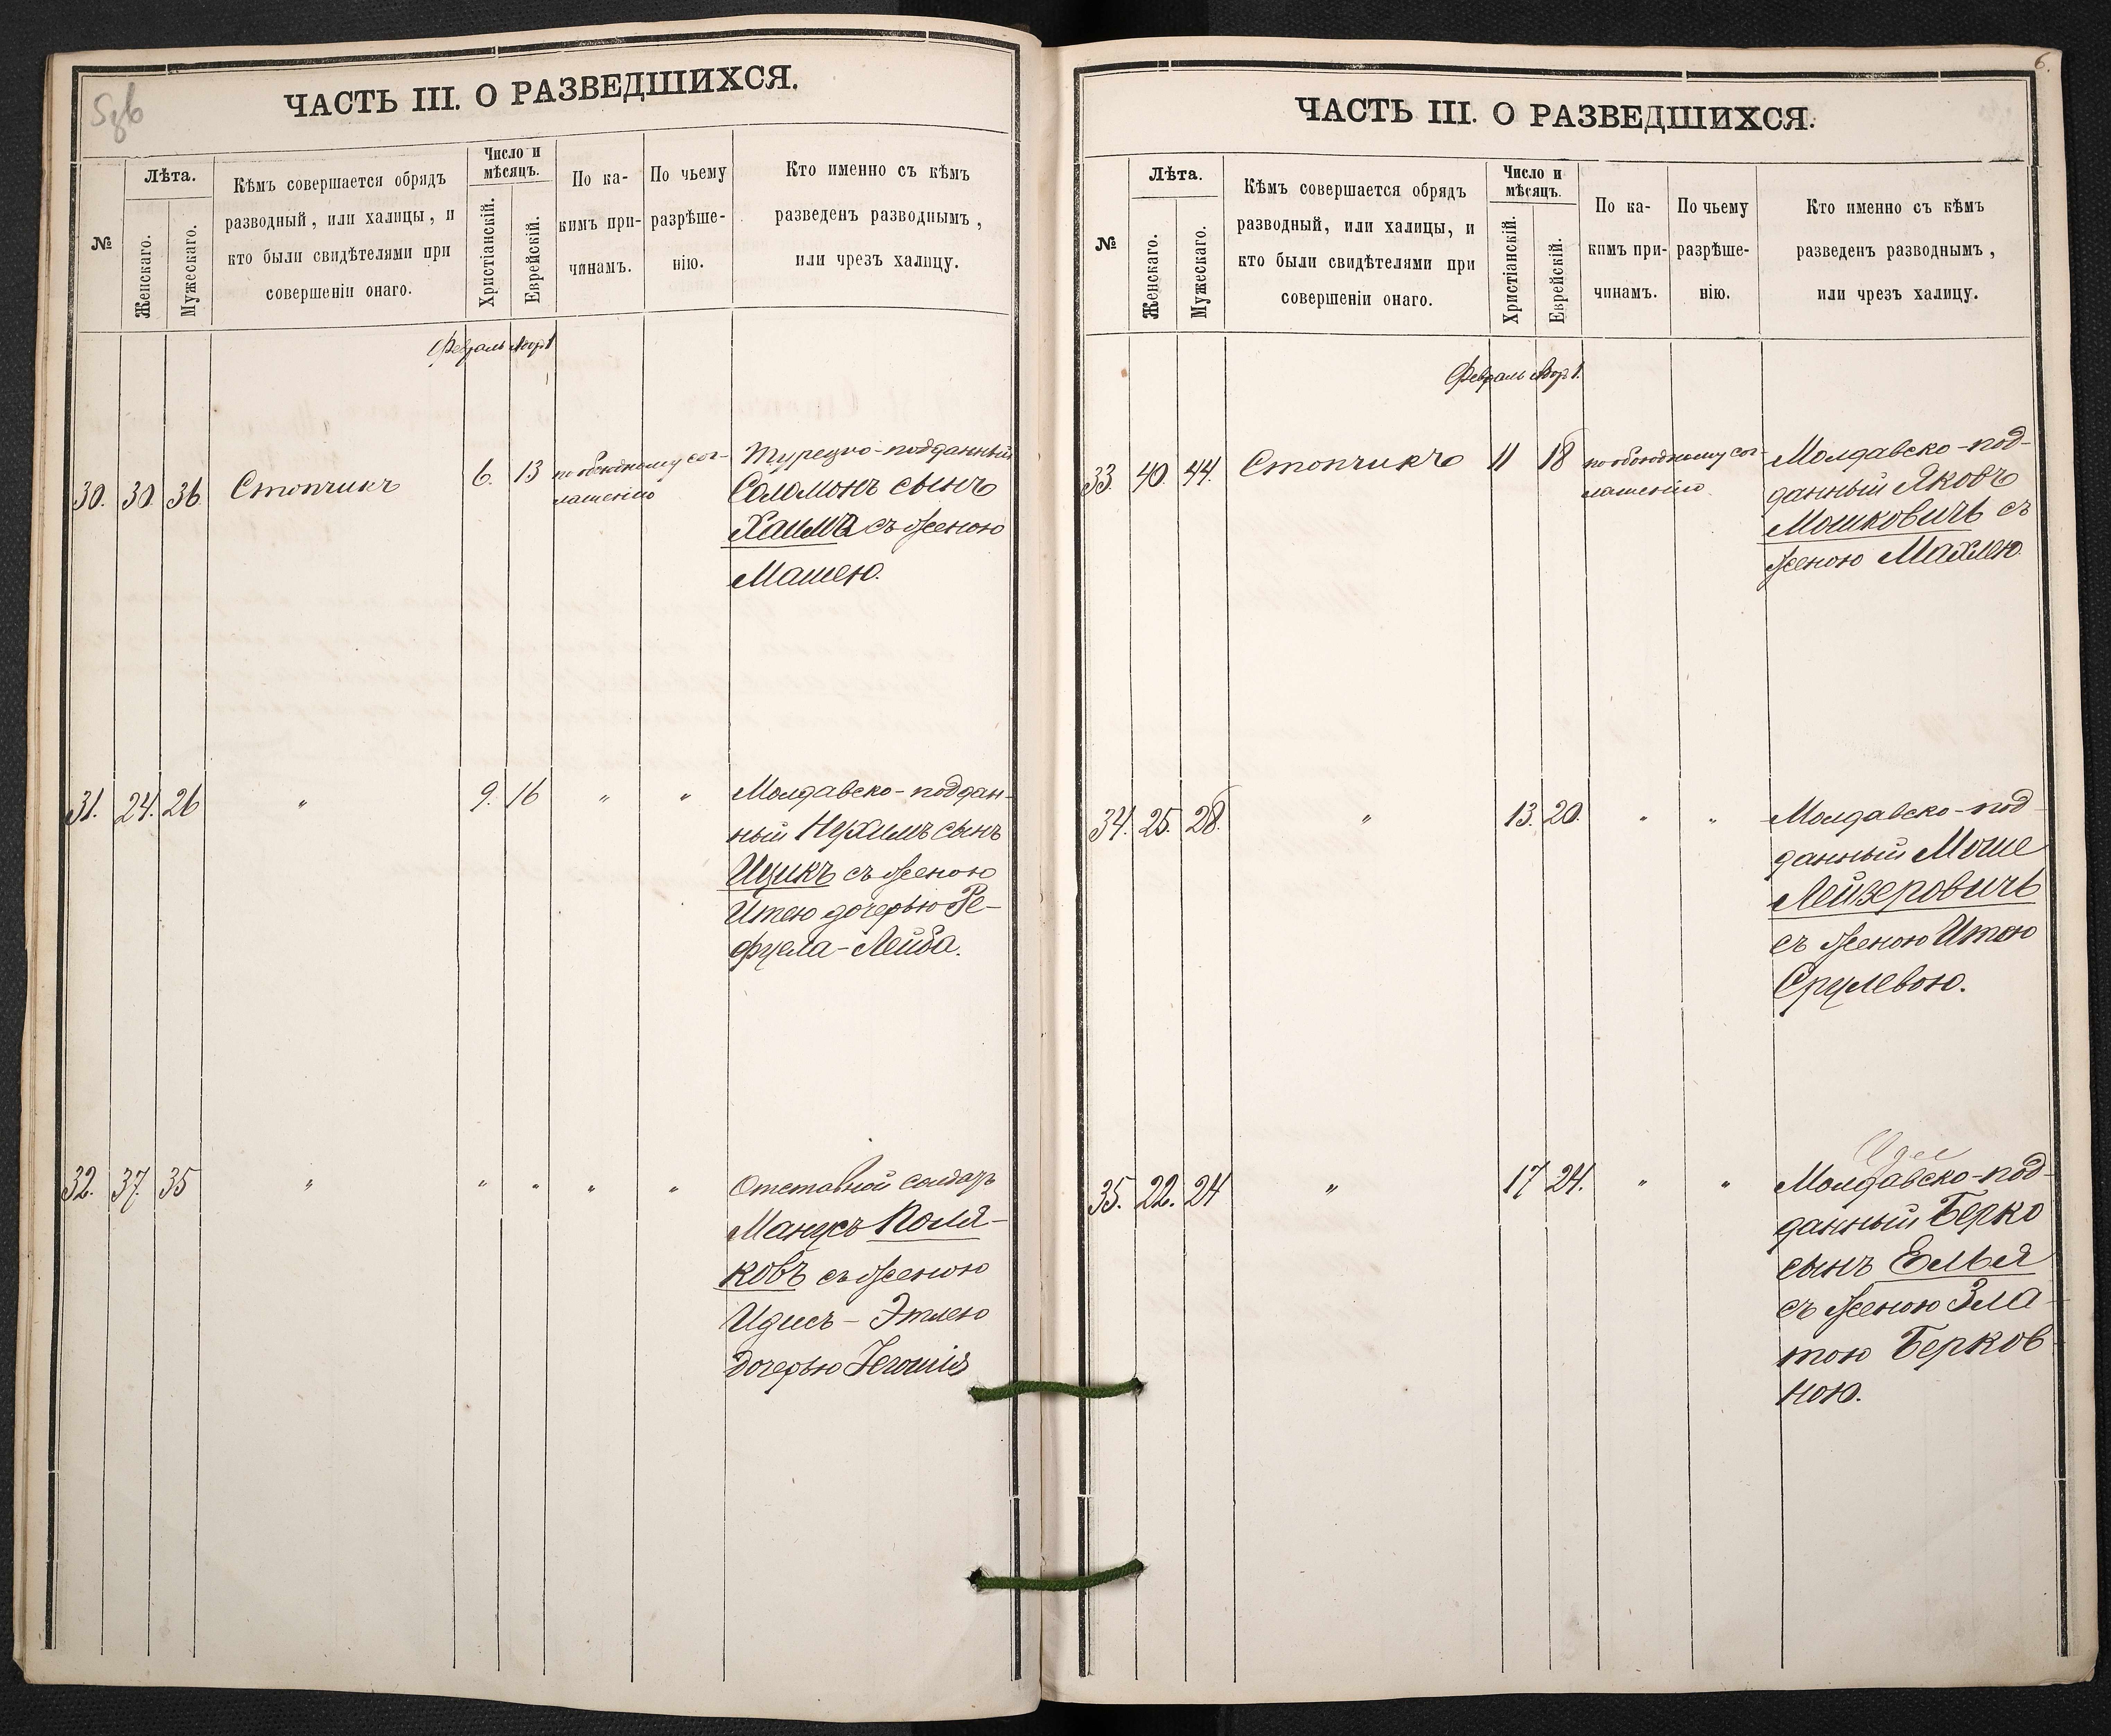 ЧАСТЬ III. О РАЗВЕДШИХСЯ.
№
Лѣта.
Женскаго.
Мужескаго.
Кѣмъ совершается обрядъ
разводный, или халицы, и
кто были свидѣтелями при
совершеніи онаго.
Число и
мѣсяцъ.
Христіанскій.
Еврейскій.
По ка-
кимъ при-
чинамъ.
По чьему
разрѣше-
нію.
Кто именно съ кѣмъ
разведенъ разводнымъ,
или чрезъ халицу.
Февраль Адръ 1
30. 30 36. Стопчикъ 6. 13 по обоюдному сог-
лашенію
Турецко-подданный
Соломонъ сынъ
Хаима съ женою
Машею.
31. 24. 26 " 9. 16 " "
Молдавско-поддан-
ный Нухимъ сынъ
Ицикъ съ женою
Итею дочерью Ре-
фуела-Лейба.
32. 37. 35 " " " " "
Отставной солдатъ
Манусъ Поля-
ковъ съ женою
Идисъ-Этлею
дочерью
ЧАСТЬ III. О РАЗВЕДШИХСЯ.
6.
№
Лѣта.
Женскаго.
Мужескаго.
Кѣмъ совершается обрядъ
разводный, или халицы, и
кто были свидѣтелями при
совершеніи онаго.
Число и
мѣсяцъ.
Христіанскій.
Еврейскій.
По ка-
кимъ при-
чинамъ.
По чьему
разрѣше-
нію.
Кто именно съ кѣмъ
разведенъ разводнымъ,
или чрезъ халицу.
Февраль Адръ 1.
33. 40. 44. Стопчикъ 11 18 по обоюдному сог-
лашенію
Молдавско-под-
данный Яковъ
Мошковичъ съ
женою Махлею
34. 25. 28. " 13. 20. " "
Молдавско-под-
данный Моше
Лейзеровичъ
съ женою Итою
Срулевою.
35. 22. 24 " 17 24. " "
Молдавско-под-
данный Берко
сынъ Елья
съ женою Зла-
тою Берков-
ною.